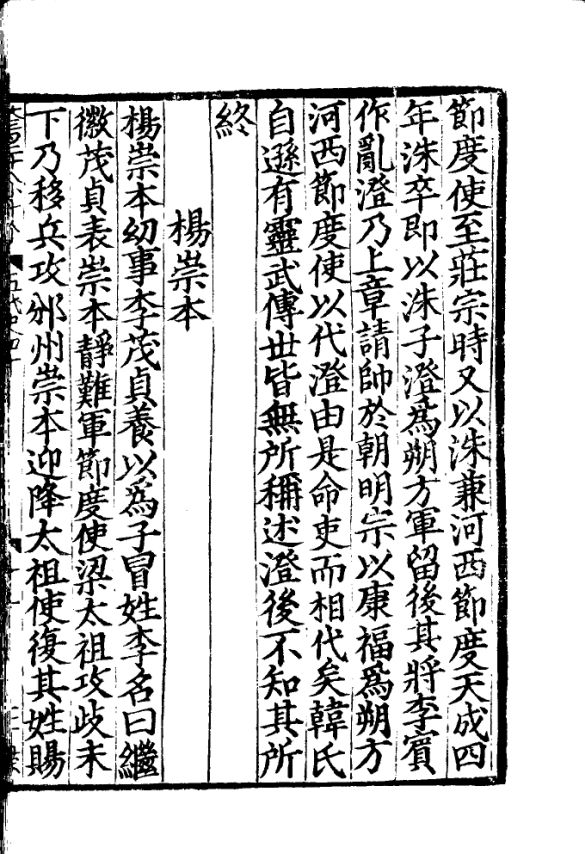 節度使至莊宗時又以洙兼河西節度天成四
年洙卒即以洙子澄爲朔方軍留後其將李賓
作亂澄乃上章請帥於朝明宗以康福爲朔方
河西節度使以代澄由是命吏而相代矣韓氏
自遜有靈武傳世皆無所稱述澄後不知其所
終
楊崇本
楊崇本幼事李茂貞養以爲子冒姓李名曰繼
徽茂貞表崇本靜難軍節度使梁太祖攻歧未
下乃移兵攻邠州崇本迎降太祖使復其姓賜